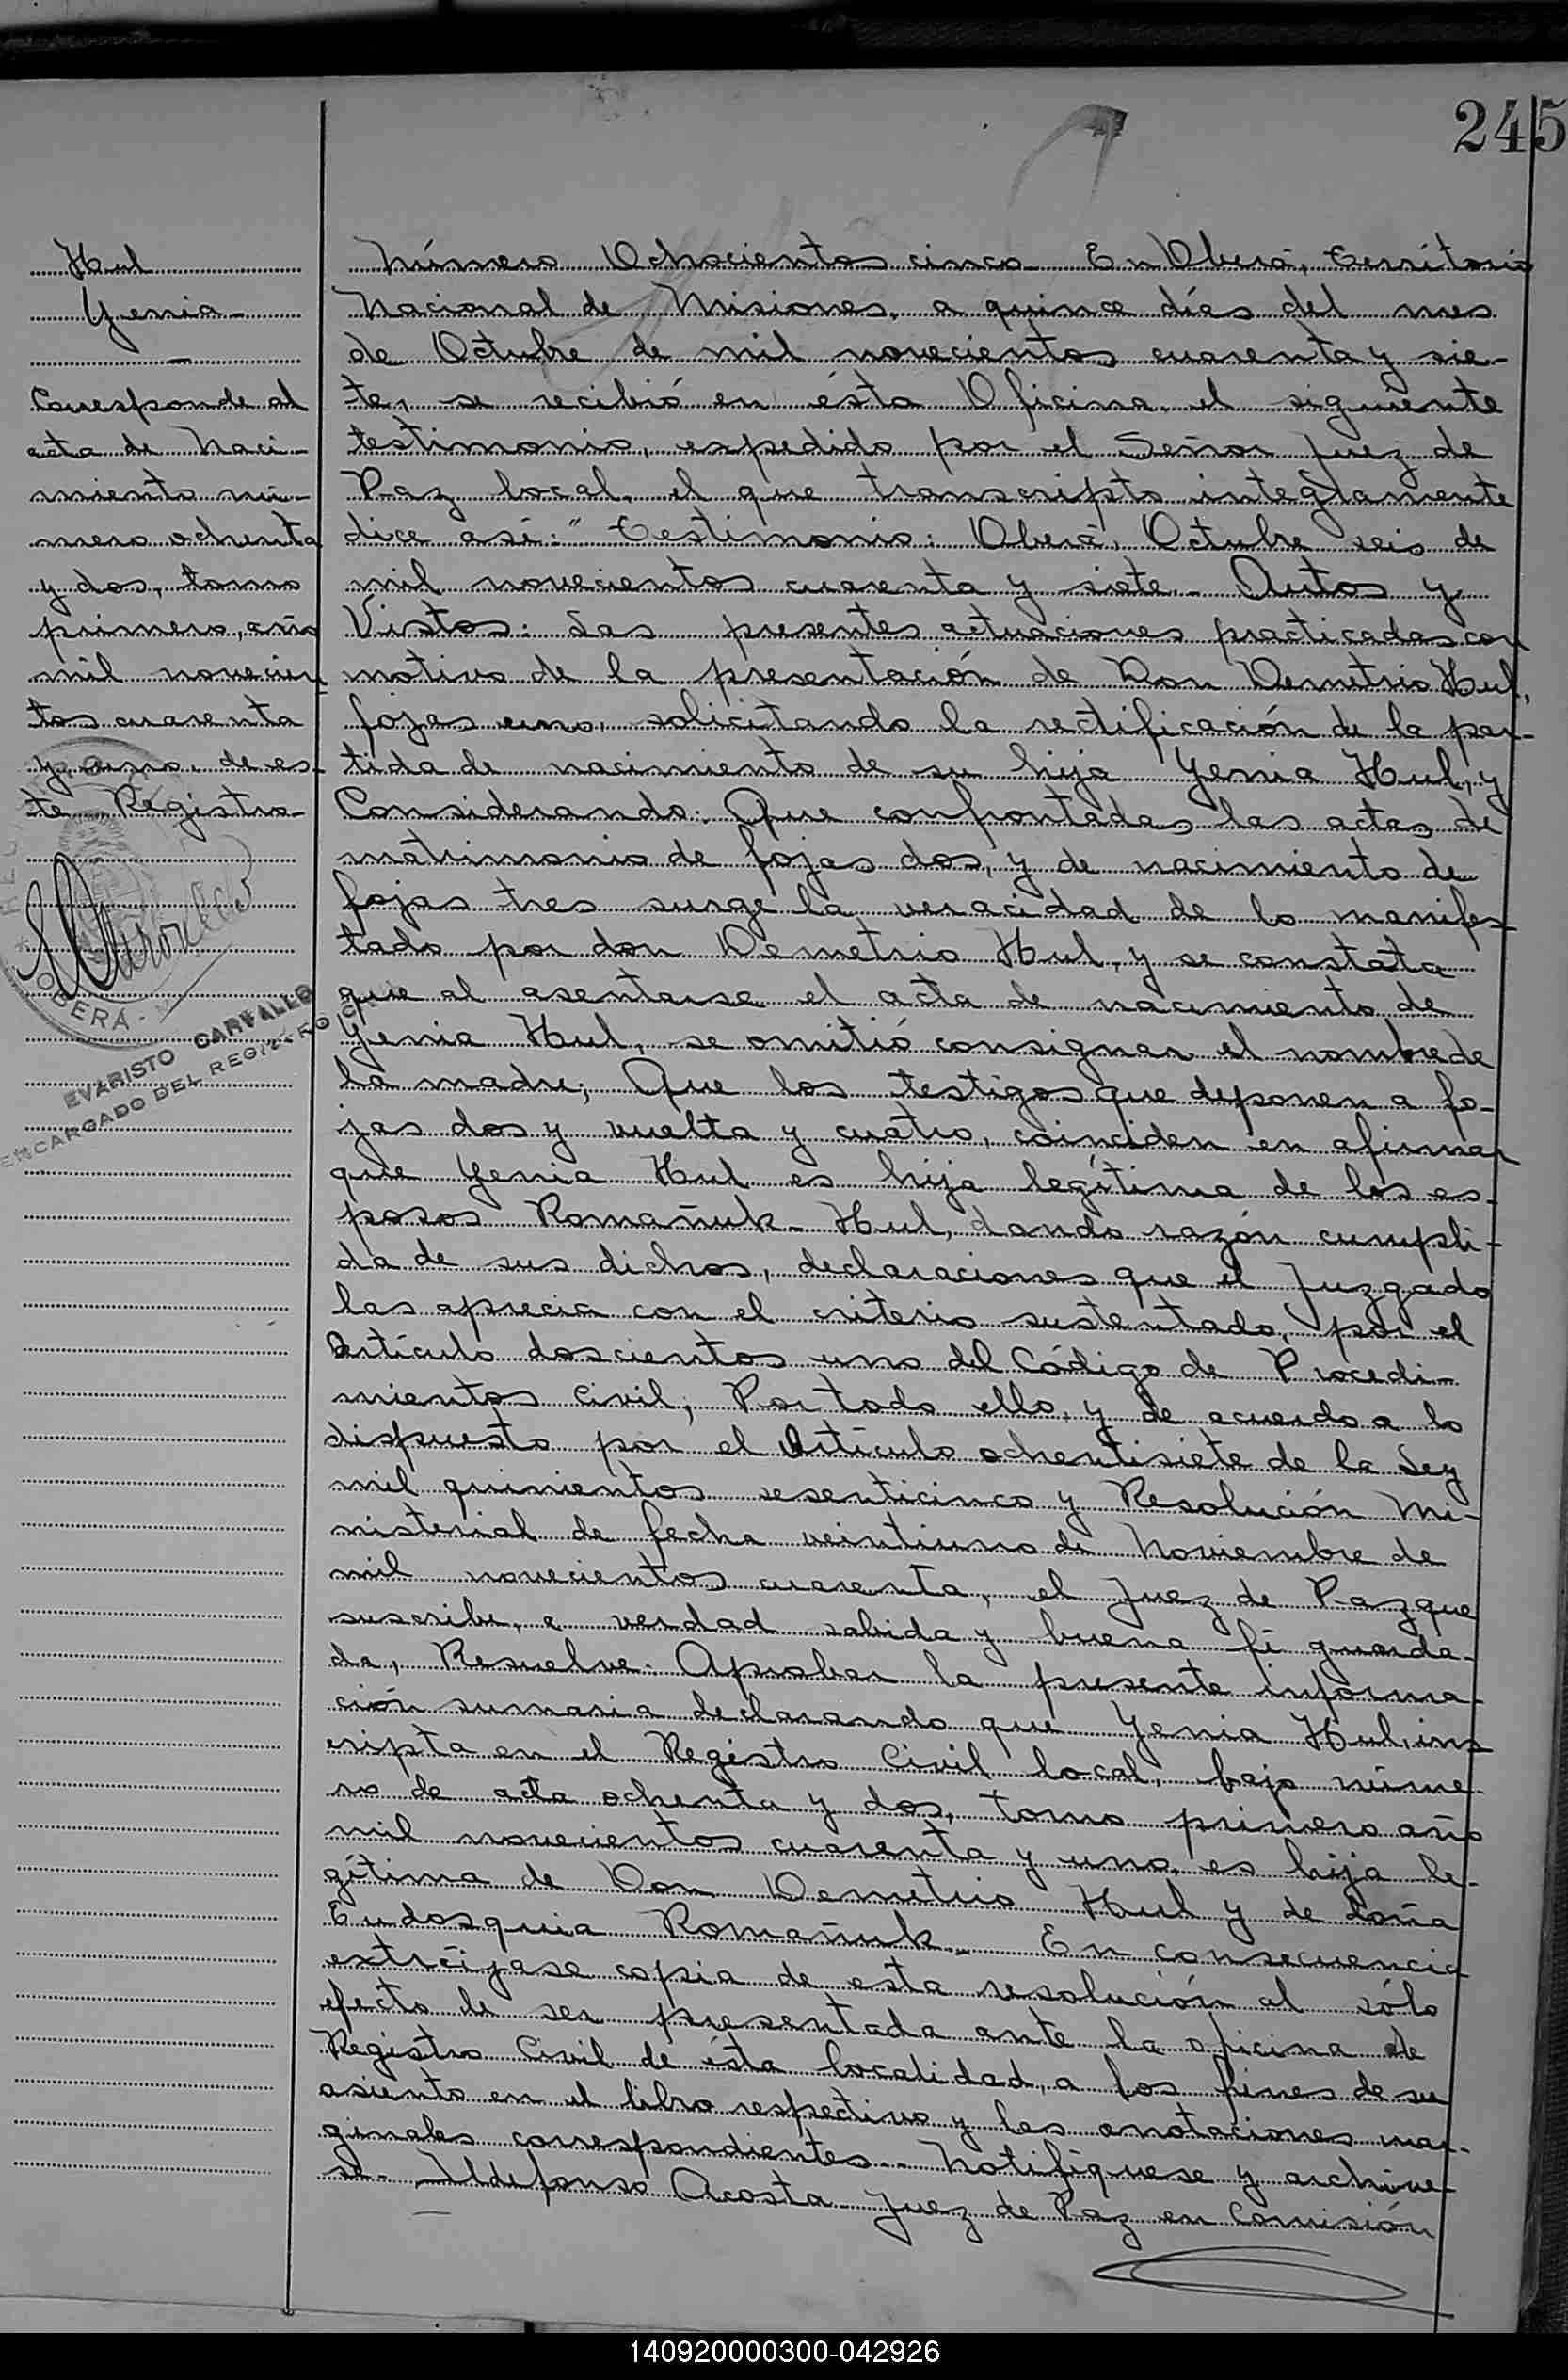 245
Hul
Yenia-
-
Corresponde al
acta de Naci-
miento nú-
mero ochenta
y dos, tomo
primero, año
mil novecien
tos cuarenta
y uno, de es-
te Registro-
OBERÁ-
EVARISTO CARVALLO
ENCARGADO DEL REGISTRO CIVIL
Número Ochocientos cinco- En Oberá, Territorio
Nacional de Misiones, a quince días del mes
de Octubre de mil novecientos cuarenta y sie-
te, se recibió en ésta Oficina, el siguiente
testimonio, expedido por el Señor Juez de
Paz local, el que transcripto integramente
dice así: "Testimonio: Oberá, Octubre seis de
mil novecientos cuarenta y siete.- Autos y
Vistos: Las presentes actuaciones practicadas con
motivo de la presentación de Don Demetrio Hul,
fojas uno, solicitando la rectificación de la par-
tida de nacimiento de su hija Yenia Hul, y
Considerando: Que confrontadas las actas de
matrimonio de fojas dos, y de nacimiento de
fojas tres surge la veracidad de lo manifes
tado por don Demetrio Hul, y se constata
que al asentarse el acta de nacimiento de
Yenia Hul, se omitió consignar el nombre de
la madre; Que los testigos que deponen a fo-
jas dos y vuelta y cuatro, coinciden en afirmar
que Yenia Hul es hija legítima de los es-
posos Romañuk- Hul, dando razón cumpli-
da de sus dichos, declaraciones que el Juzgado
las aprecia con el criterio sustentado, por el
Artículo doscientos uno del Código de Procedi-
mientos Civil; Por todo ello, y de acuerdo a lo
dispuesto por el Artículo ochentisiete de la Ley
mil quinientos sesenticinco y Resolución Mi-
nisterial de fecha veintiuno de Noviembre de
mil novecientos cuarenta, el Juez de Paz que
suscribe, a verdad sabida y buena fé guarda-
da, Resuelve: Aprobar la presente informa-
ción sumaria declarando que Yenia Hul, ins
cripta en el Registro Civil local, bajo núme-
ro de acta ochenta y dos, tomo primero año
mil novecientos cuarenta y uno, es hija le-
gítima de Don Demetrio Hul y de doña
Eudosquia Romañuk.- En consecuencia
extráigase copia de esta resolución al sólo
efecto de ser presentada ante la oficina de
Registro Civil de ésta localidad, a los fines de su
asiento en el libro respectivo y las anotaciones mar-
ginales correspondientes.- Notifíquese y archíve-
se.- Ildefonso Acosta- Juez de Paz en Comisión
140920000300-042926